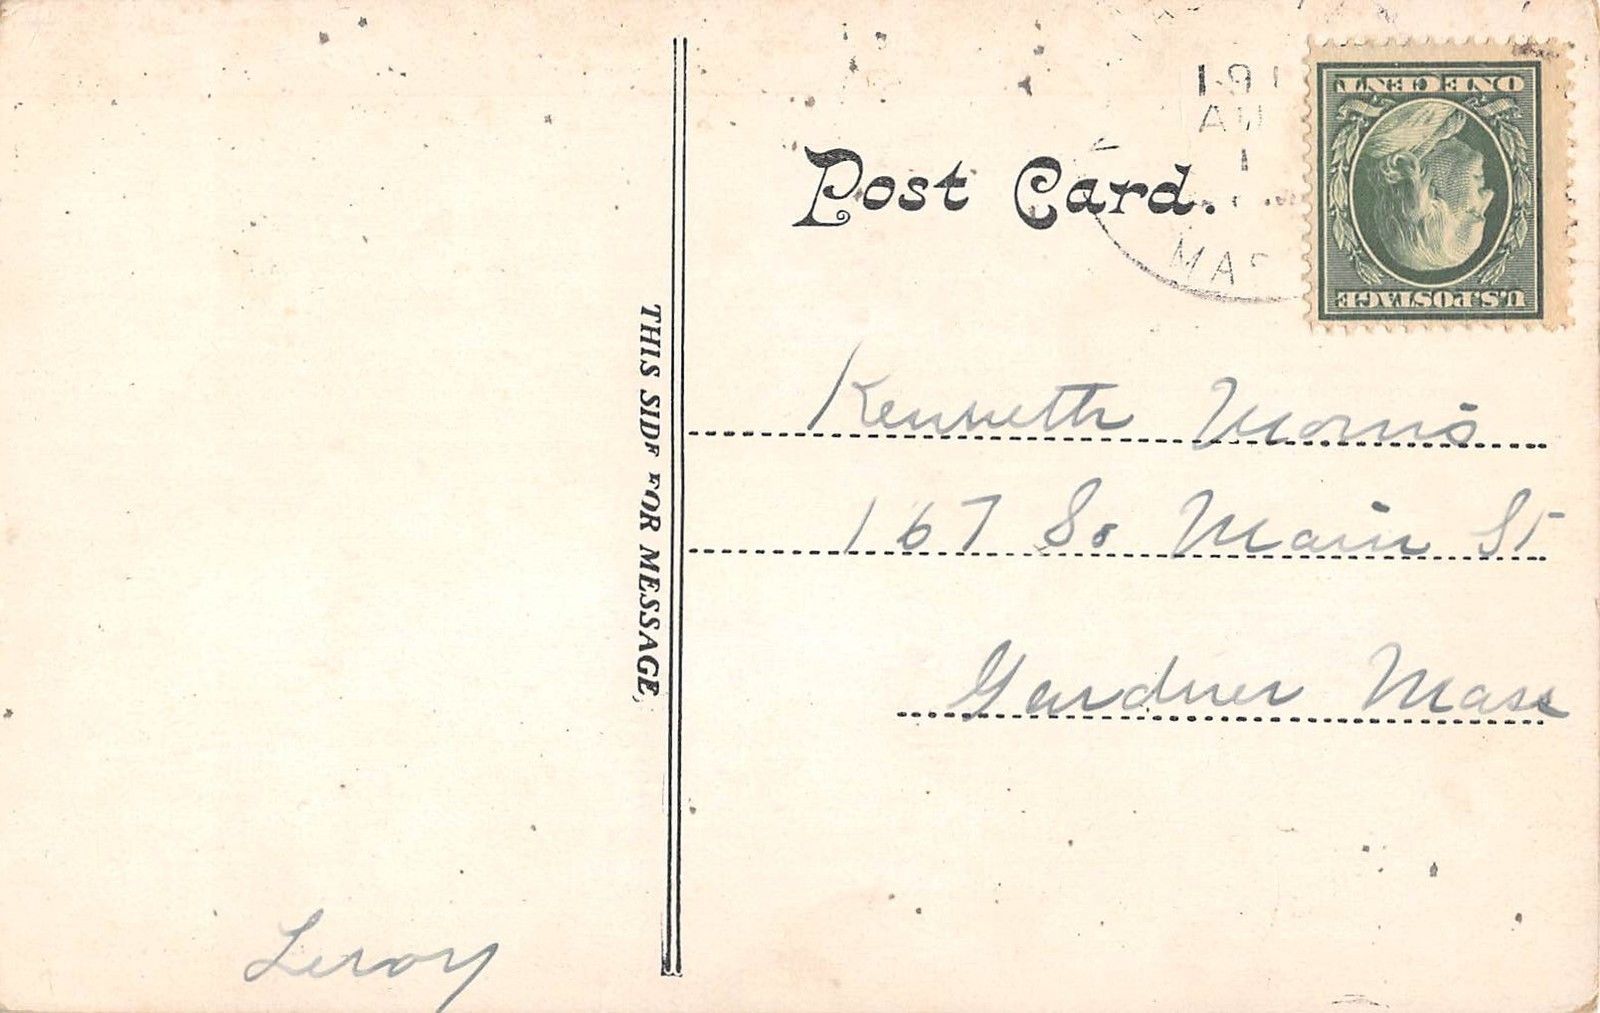 Post Card.
THIS SIDE FOR MESSAGE.
191
AU
1
MAS
ONE CENT
U.S. POSTAGE
Kenneth Morris
167 So Main St
Gardner Mass
Leroy